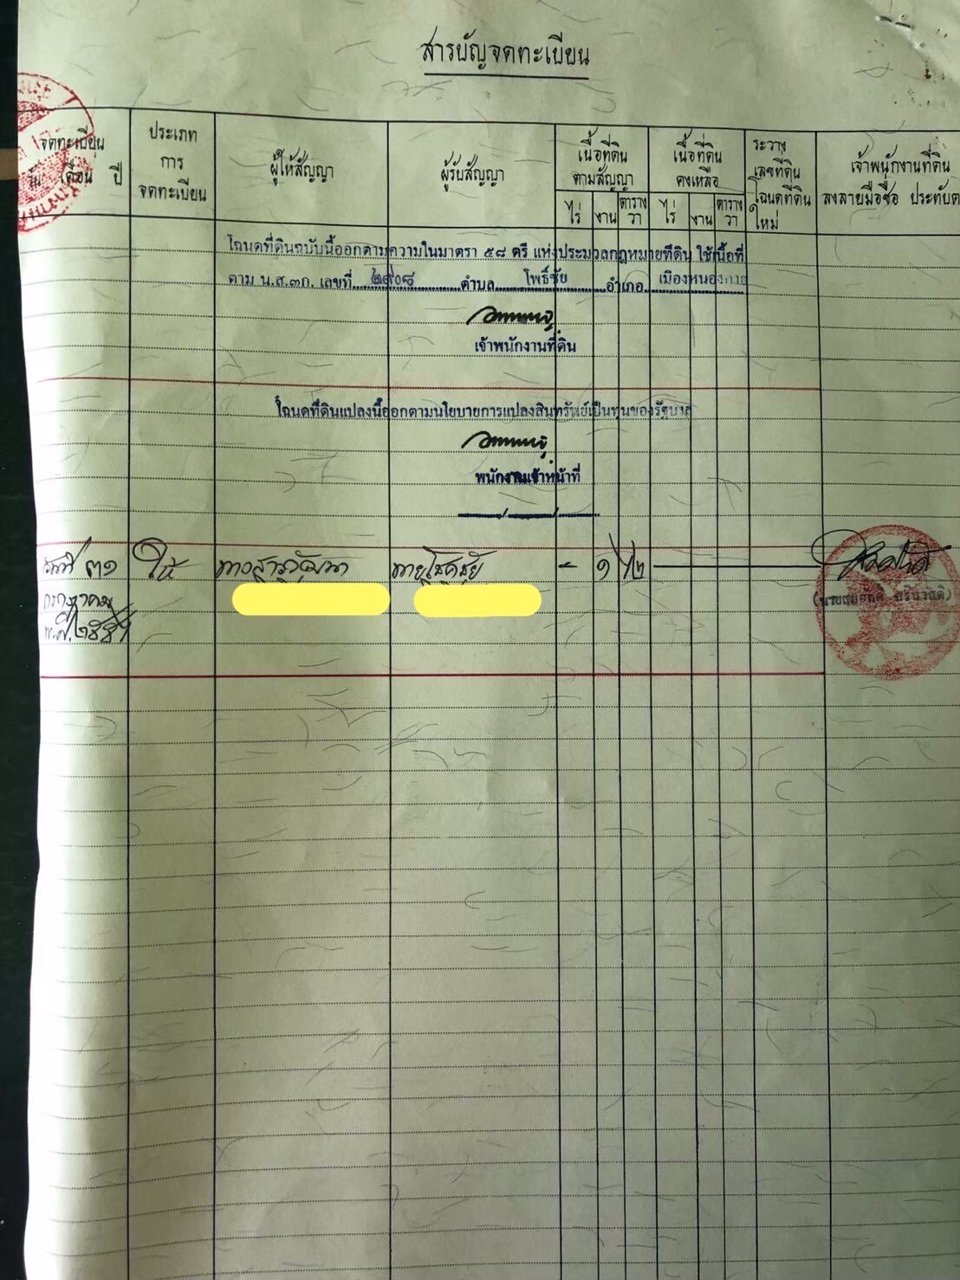 สารบัญจดทะเบียน
จดทะเบียน
วัน เดือน ปี
ประเภท
การ
จดทะเบียน
ผู้ให้สัญญา
ผู้รับสัญญา
เนื้อที่ดิน
ตามสัญญา
ไร่ งาน ตาราง
วา
เนื้อที่ดิน
คงเหลือ
ไร่ งาน ตาราง
วา
ระวาง
เลขที่ดิน
โฉนดที่ดิน
ใหม่
เจ้าพนักงานที่ดิน
ลงลายมือชื่อ ประทับต
โฉนดที่ดินฉบับนี้ออกตามความในมาตรา ๕๘ ตรี แห่งประมวลกฎหมายที่ดิน ใช้เนื้อที่
ตาม น.ส.๓ก. เลขที่ ๒๙๐๘ ตำบล โพธิ์ชัย อำเภอ เมืองหนองคาย
เจ้าพนักงานที่ดิน
โฉนดที่ดินแปลงนี้ออกตามนโยบายการแปลงสินทรัพย์เป็นทุนของรัฐบาล
พนักงานเจ้าหน้าที่
วันที่ ๓๑ ให้ นาย โชคชัย - ๑
กรกฎาคม
พ.ศ.